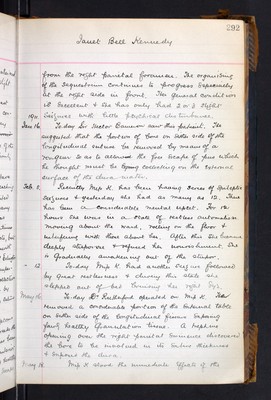 292
Janet Bell Kennedy
from the right parietal foramen. The organising
of the sequestrum continues to progress especially
at the right side in front. Her general condition
is excellent & she has only had 2 or 3 slight
seizures with little psychical disturbance.
1911. Jan 16. To-day Sir Hector Cameron saw this patient. He
suggested that the portion of bone on either side of the
longitudinal suture be removed by means of a
rongeur so as to allow the free escape of pus which
he thought must be collecting on the external
surface of the dura mater.
Feb. 8. Recently Miss K. has been having series of epileptic
seizures & yesterday she had as many as 12. There
has been a considerable mental upset. For
hours she was in a state of restless automatism
moving about the ward, rolling on the floor &
interfering with those about her. After this she became
deeply stuporose & refused her nourishment. She
is gradually awakening out of the stupor.
- 12 To-day Miss K. had another seizure followed
by great restlessness & during this state she
slipped out of bed bruising her right eye.
May 16. To-day Dr. Rutherford operated on Miss K. He
removed a considerable portion of the external table
on either side of the longitudinal sinus exposing
fairly healthy granulation tissue. A trephine
opening over the right parietal eminence discovered
the bone to be involved in its entire thickness
& exposed the dura.
May 18. Miss K. stood the immediate effects of the